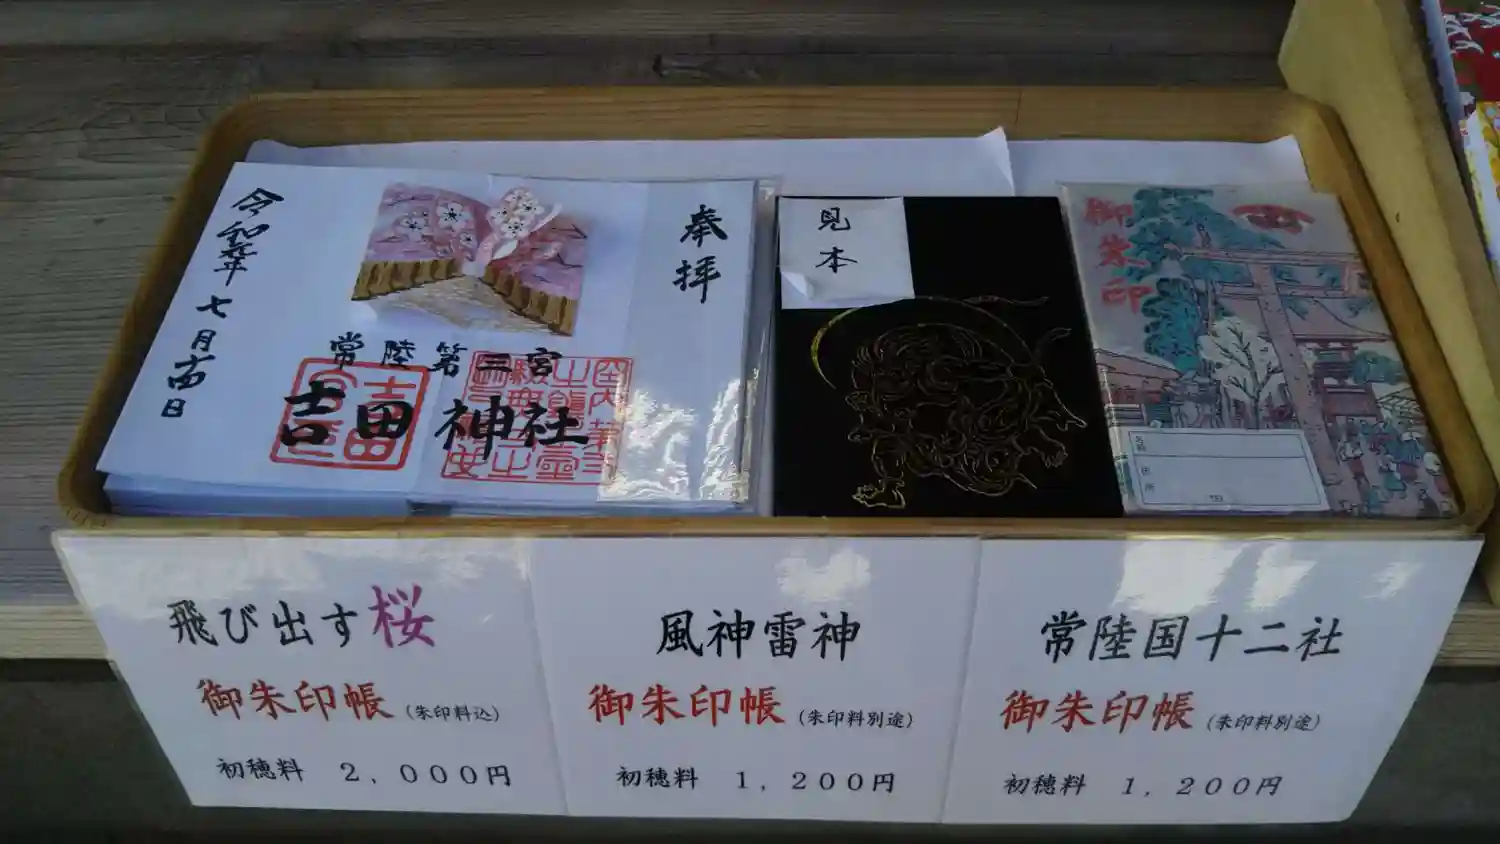 奉拝
常陸第三宮
吉田神社
令和元年七月十四日
見本
御朱印
飛び出す桜
御朱印帳（朱印料込）
初穂料　２，０００円
風神雷神
御朱印帳（朱印料別途）
初穂料　１，２００円
常陸国十二社
御朱印帳（朱印料別途）
初穂料　１，２００円